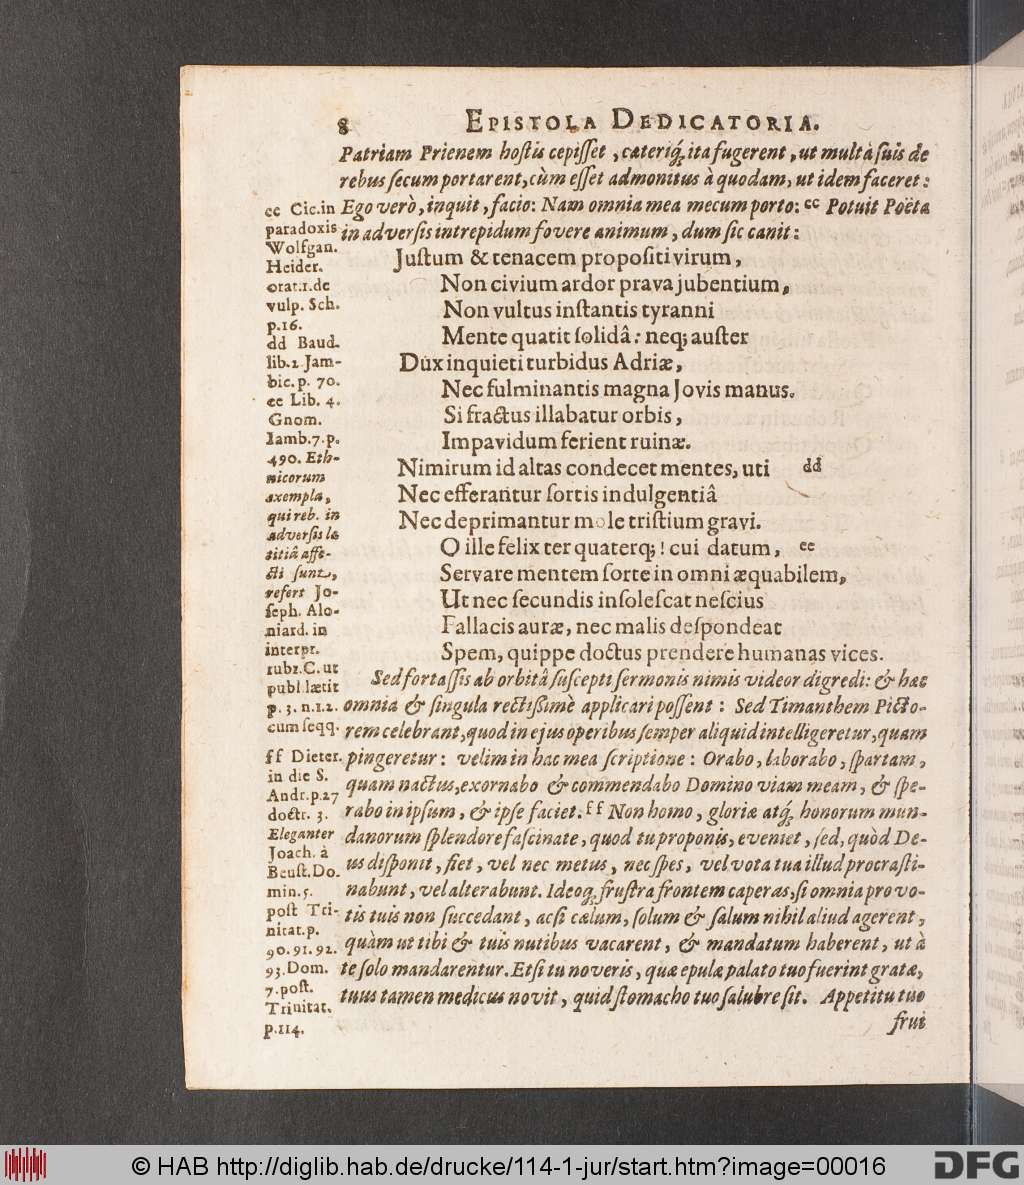 8 EPISTOLA DEDICATORIA.
Patriam Prienem hostis cepisset, cæteriq́; ita fugerent, ut multà suis de
rebus secum portarent, cùm esset admonitus à quodam, ut idem faceret:
Ego verò, inquit, facio: Nam omnia mea mecum porto: cc Potuit Poëta
in adversis intrepidum fovere animum, dum sic canit:
Justum & tenacem propositi virum,
Non civium ardor prava jubentium,
Non vultus instantis tyranni
Mente quatit solidâ: neq; auster
Dux inquieti turbidus Adriæ,
Nec fulminantis magna Jovis manus.
Si fractus illabatur orbis,
Impavidum ferient ruinæ.
Nimirum id altas condecet mentes, uti dd
Nec efferantur sortis indulgentiâ
Nec deprimantur mole tristium gravi.
O ille felix ter quaterq;! cui datum, ee
Servare mentem sorte in omni æquabilem,
Ut nec secundis insolescat nescius
Fallacis auræ, nec malis despondeat
Spem, quippe doctus prendere humanas vices.
Sed fortassis ab orbitâ suscepti sermonis nimis videor digredi: & hæc
omnia & singula rectissimè applicari possent: Sed Timanthem Picto-
rem celebrant, quod in ejus operibus semper aliquid intelligeretur, quam
pingeretur: velim in hac mea scriptione: Orabo, laborabo, spartam,
quam nactus, exornabo & commendabo Domino viam meam, & spe-
rabo in ipsum, & ipse faciet. ff Non homo, gloriæ atq́; honorum mun-
danorum splendore fascinate, quod tu proponis, eveniet, sed, quòd De-
us disponit, fiet, vel nec metus, nec spes, vel vota tua illud procrasti-
nabunt, vel alterabunt. Ideoq́; frustra frontem caperas, si omnia pro vo-
tis tuis non succedant, acsi cælum, solum & salum nihil aliud agerent,
quàm ut tibi & tuis nutibus vacarent, & mandatum haberent, ut à
te solo mandarentur. Etsi tu noveris, quæ epulæ palato tuo fuerint gratæ,
tuus tamen medicus novit, quid stomacho tuo salubre sit. Appetitu tuo
frui
cc Cic. in
paradoxis
Wolfgan.
Heider.
orat. 1. de
vulp. Sch.
p. 16.
dd Baud.
lib. 2 Jam-
bic. p. 70.
ee Lib. 4.
Gnom.
Iamb. 7. p.
490. Eth-
nicorum
exempla,
qui reb. in
adversis læ
titiâ affe-
cti sunt,
refert Jo-
seph. Alo-
niard. in
interpr.
rubr. C. ut
publ. lætit
p. 3. n. 1. 2.
cum seqq.
ff Dieter.
in die S.
Andr. p. 27
doctr. 3.
Eleganter
Joach. à
Beust. Do.
min. 5.
post Tri-
nitat. p.
90. 91. 92.
93. Dom.
7. post.
Trinitat.
p. 114.
© HAB http://diglib.hab.de/drucke/114-1-jur/start.htm?image=00016
DFG